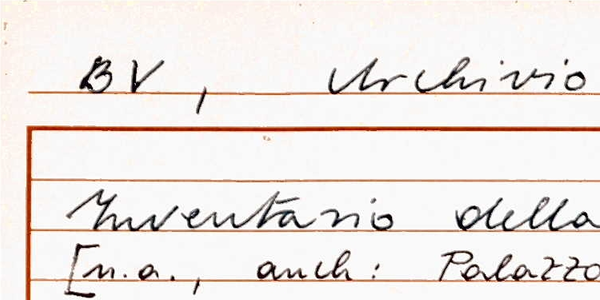 BV, Archivio
Inventario della
[n.a., anch: Palazzo